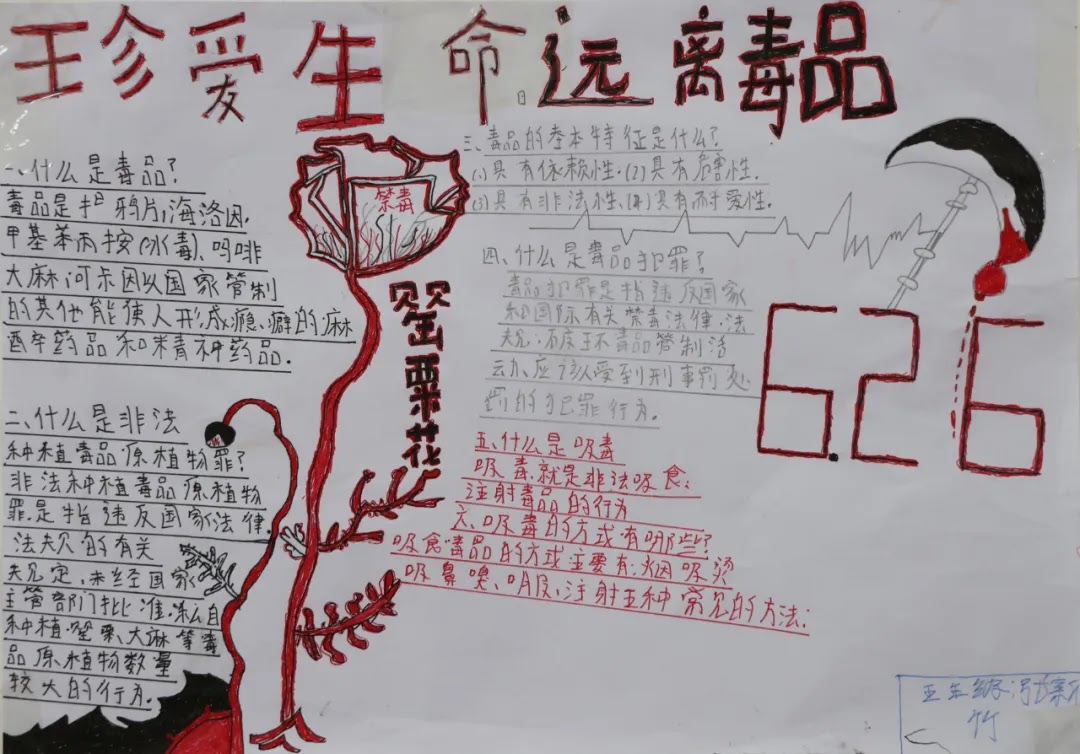 珍爱生命远离毒品
一、什么是毒品?
毒品是指鸦片,海洛因.
甲基苯丙按(冰毒)、吗啡
大麻,可卡因以国家管制
的其他能使人形成瘾、癖的麻
醉药品和精神药品.
二、什么是非法
种植毒品原植物罪?
非法种植毒品原植物
罪.是指违反国家法律.
法规的有关
规定,未经国家
主管部门批准.私自
种植.罂粟、大麻等毒
品原植物数量
较大的行为.
禁毒
罂粟花
三、毒品的基本特征是什么?
(1)具有依赖性.(2)具有危害性.
(3)具有非法性.(4)具有耐爱性.
四、什么是毒品犯罪?
毒品犯罪是指违反国家
和国际有关禁毒法律、法
规.破坏毒品管制活
动、应该受到刑事罚处
罚的犯罪行为.
五、什么是吸毒
吸毒就是非法吸食;
注射毒品的行为
六、吸毒的方式有哪些?
吸食毒品的方式主要有:烟吸烫
吸鼻嗅、口服、注射五种常见的方法:
6.26
竹